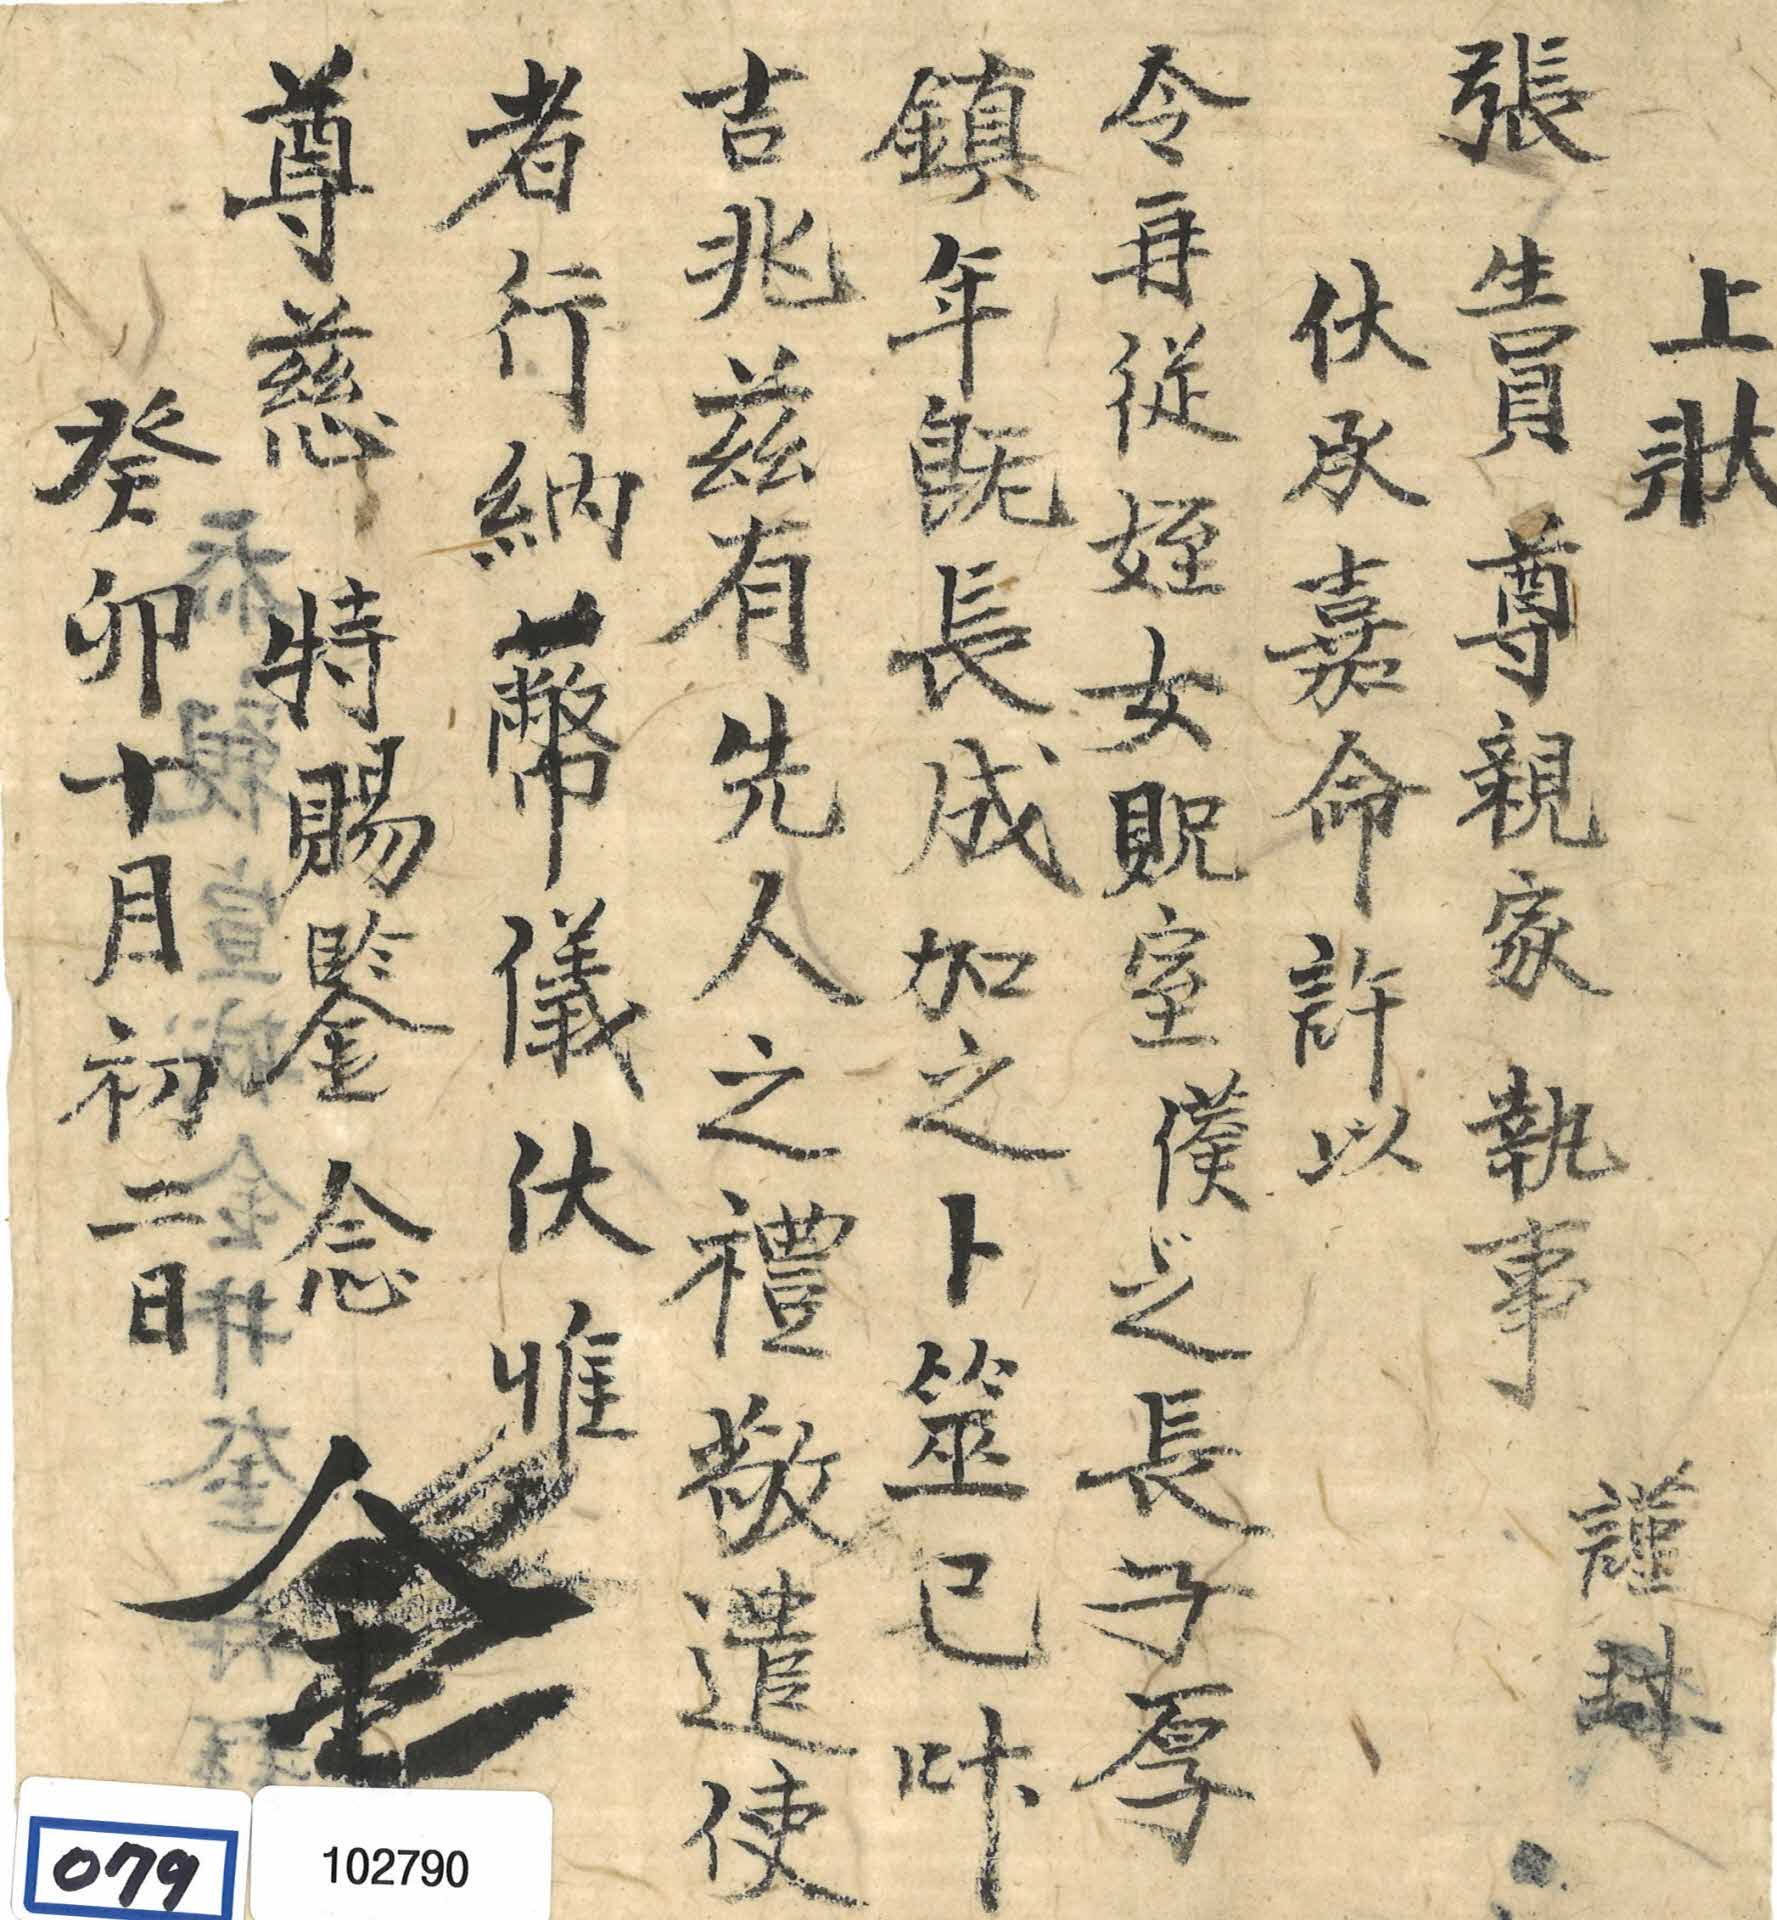 上狀
謹
張生員 尊親家 執事
伏承嘉命許以
令再從姪女貺室僕之長子厚
鎮年旣長成加之卜筮已叶
吉兆玆有先人之禮敬遣使
者行納幣儀伏惟
尊慈 特賜鑒念
忝親宣城金井奎
癸卯十月初二日
079
102790